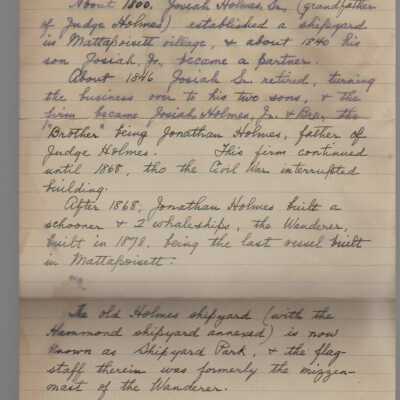 About 1800, Josiah Holmes, Sr. (grandfather
of Judge Holmes) established a shipyard
in Mattapoisett village, & about 1840 his
son Josiah, Jr. became a partner.
About 1846 Josiah Sr. retired, turning
the business over to his two sons, & the
firm became Josiah Holmes, Jr. & Bro., the
"Brother" being Jonathan Holmes, father of
Judge Holmes. This firm continued
until 1868, tho the Civil War interrupted
building.
After 1868, Jonathan Holmes built a
schooner & 2 whaleships, the Wanderer,
built in 1878, being the last vessel built
in Mattapoisett.
The old Holmes shipyard (with the
Hammond shipyard annexed) is now
known as Shipyard Park, & the flag-
staff therein was formerly the mizzen-
mast of the Wanderer.